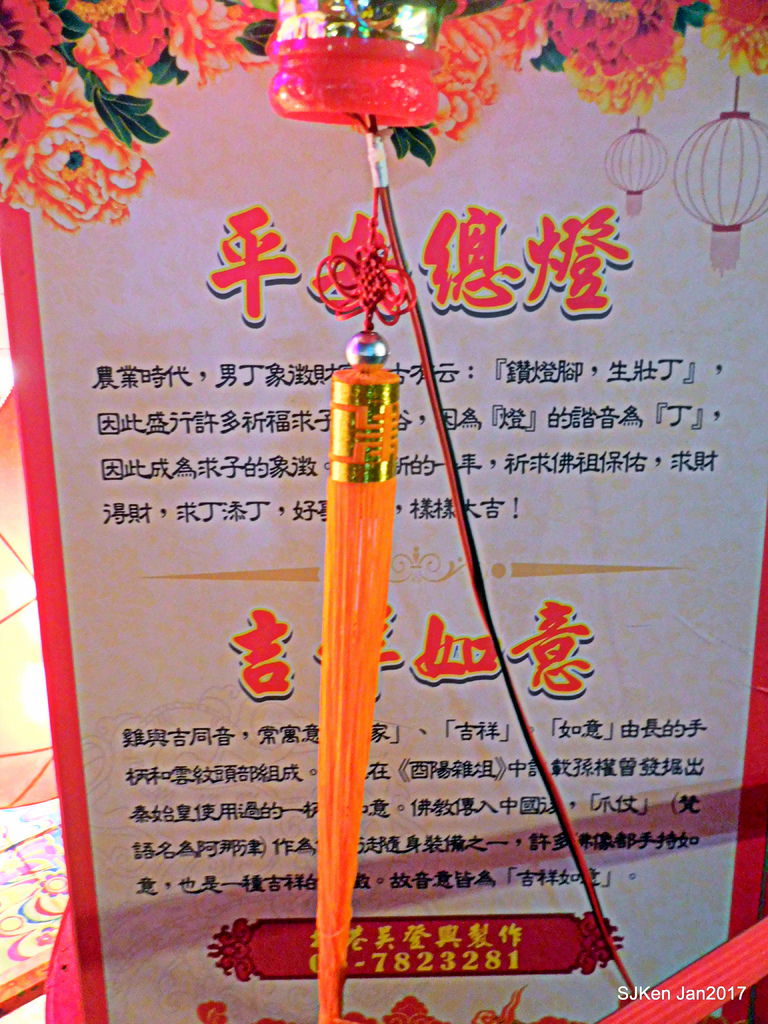 平安總燈
農業時代，男丁象徵財 古有云：『鑽燈腳，生壯丁』，
因此盛行許多祈福求子 俗，因為『燈』的諧音為『丁』，
因此成為求子的象徵。 新的一年，祈求佛祖保佑，求財
得財，求丁添丁，好事 ，樣樣大吉！
吉祥如意
雞與吉同音，常寓意 家」、「吉祥」。「如意」由長的手
柄和雲紋頭部組成。 在《酉陽雜俎》中記載孫權曾發掘出
秦始皇使用過的一柄 如意。佛教傳入中國後，「爪杖」（梵
語名為阿那律）作為 徒隨身裝備之一，許多佛像都手持如
意，也是一種吉祥的 徵。故音意皆為「吉祥如意」。
港吳登興製作
-7823281
SJKen Jan2017